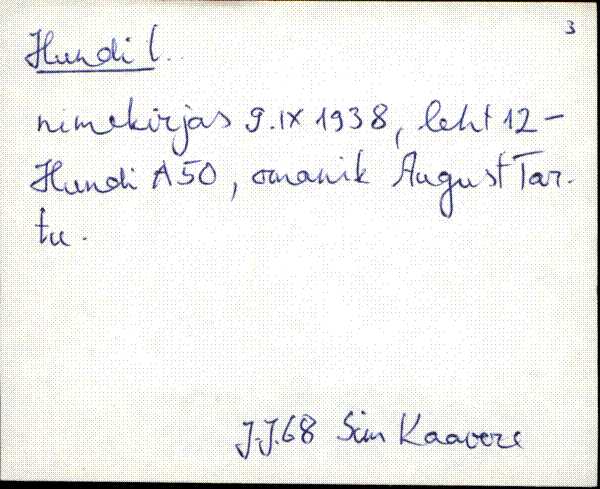 3
Hundi t.
nimekirjas 9.IX 1938, leht 12 -
Hundi A50, omanik August Tar-
tu.
J.J.68 Sim Kaavere